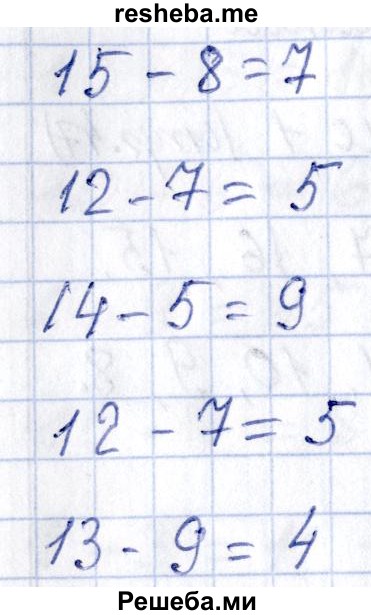 resheba.me
15 - 8 = 7
12 - 7 = 5
14 - 5 = 9
12 - 7 = 5
13 - 9 = 4
Решеба.ми